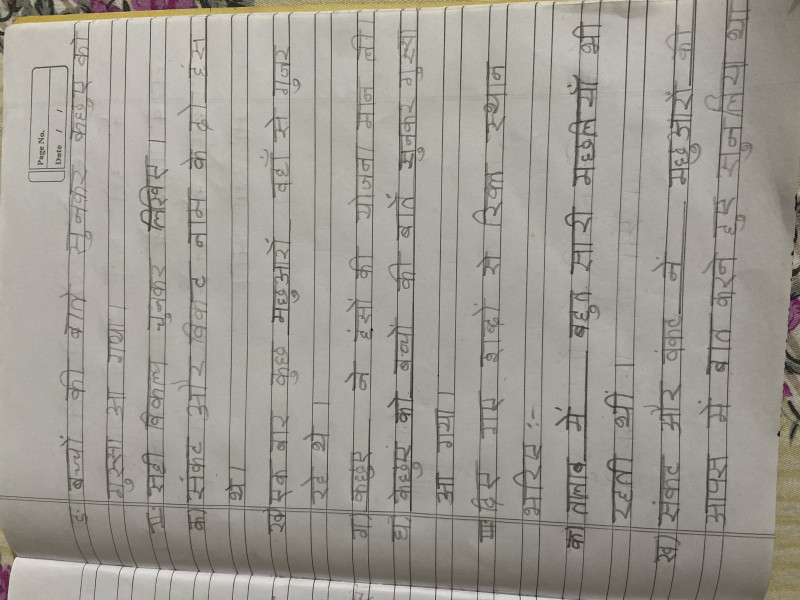 Page No.
Date / /
ड. बच्चों की बाते सुनकर कछुए को
गुस्सा आ गया।
II. सही विकल्प चुनकर लिखिए।
क) संकट और विकट नाम के दो हंस
थे।
ख) एक बार कुछ मछुआरों वहाँ से गुजर
रहे थे।
ग) कछुए ने हंसों की योजना मान ली
घ) कछुए को बच्चों की बातें सुनकर गुस्सा
आ गया।
III. दिए गए शब्दों से रिक्त स्थान
भरिए :-
क) तालाब में बहुत सारी मछलियाँ भी
रहती थीं।
ख) संकट और विकट ने मछुआरों की
आपस में बात करते हुए सुन लिया था